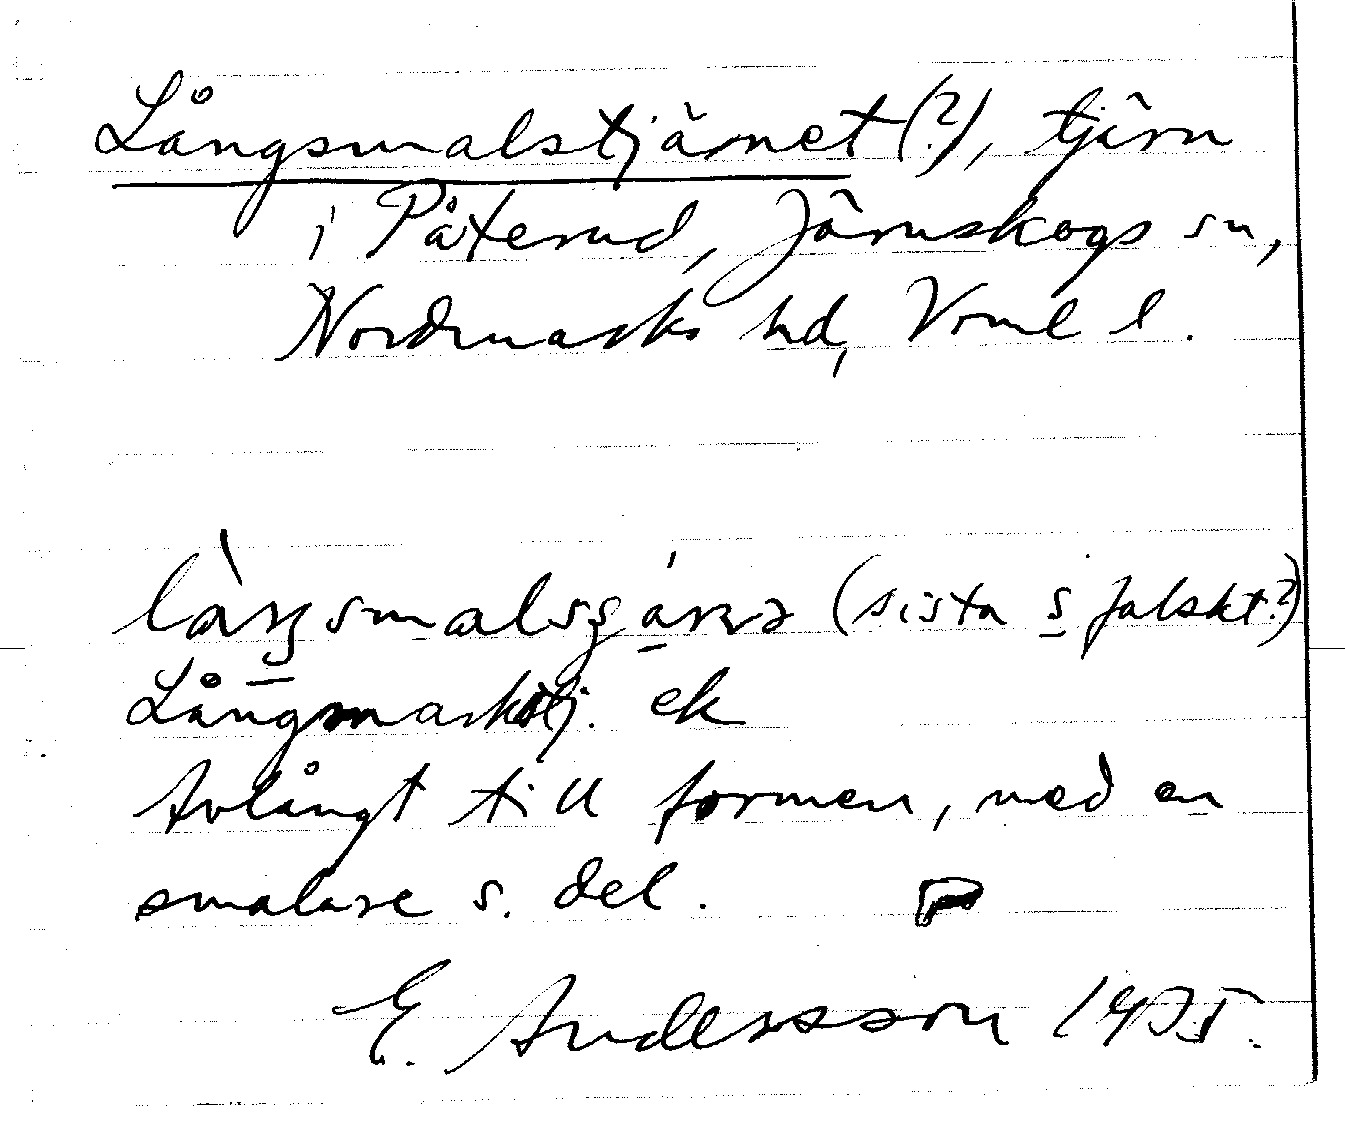 Långsmalstjärnet (?), tjärn
i Påterud, Järnskogs sn,
Nordmarks hd, Vrml l.
(sista s falskt?)
Långmarkstj. ek
Avlångt till formen, med en
smalare s. del.
E. Andersson